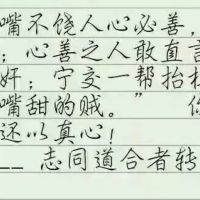 嘴不饶人心必善,
;心善之人敢直言
奸;宁交一帮抬杠
嘴甜的贼。” 你
还以真心!
__ 志同道合者转